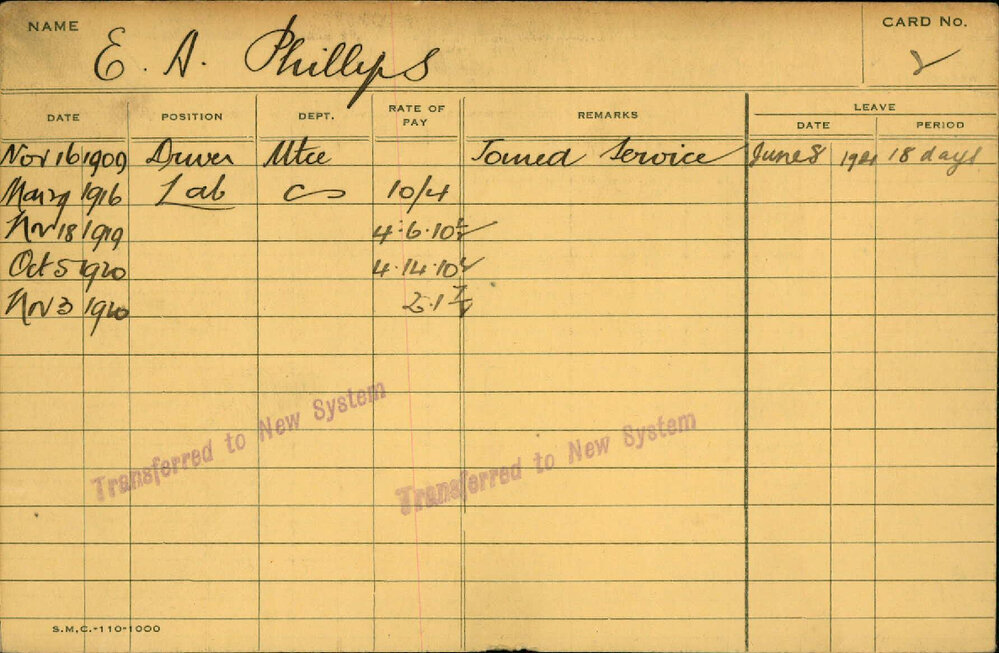 NAME E. A. Phillips CARD No. 2
DATE POSITION DEPT. RATE OF PAY REMARKS LEAVE
DATE PERIOD
Nov 16 1909 Driver Mtce Joined Service June 8 1921 18 days
1916 Lab 10/4
Nov 18 1919 4.6.10½
Oct 5 1920 4.14.10½
Nov 3 1920
Transferred to New System
Transferred to New System
S.M.C.-110-1000